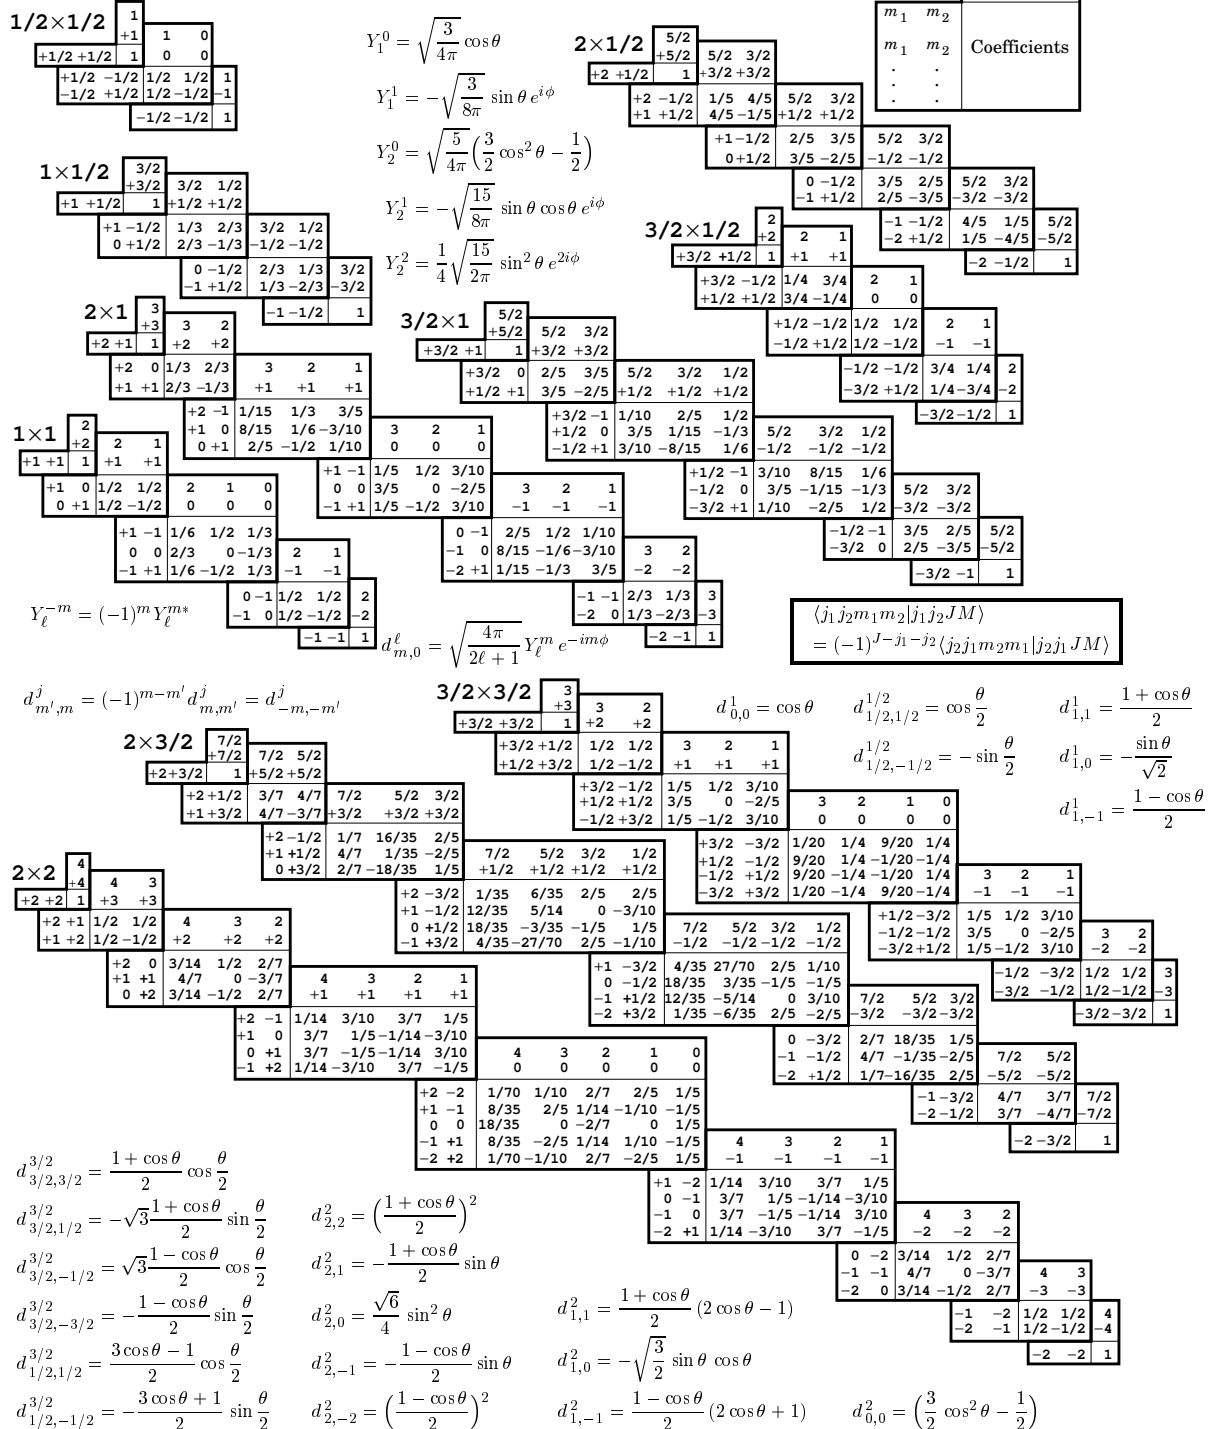 1/2×1/2
1
+1 1 0
+1/2 +1/2 1 0 0
+1/2 −1/2 1/2 1/2 1
−1/2 +1/2 1/2 −1/2 −1
−1/2 −1/2 1
Y_1^0 = √(3/4π) cos θ
Y_1^1 = −√(3/8π) sin θ e^{iφ}
Y_2^0 = √(5/4π) (3/2 cos² θ − 1/2)
Y_2^1 = −√(15/8π) sin θ cos θ e^{iφ}
Y_2^2 = 1/4 √(15/2π) sin² θ e^{2iφ}
2×1/2
5/2
+5/2 5/2 3/2
+2 +1/2 1 +3/2 +3/2
+2 −1/2 1/5 4/5 5/2 3/2
+1 +1/2 4/5 −1/5 +1/2 +1/2
+1 −1/2 2/5 3/5 5/2 3/2
0 +1/2 3/5 −2/5 −1/2 −1/2
0 −1/2 3/5 2/5 5/2 3/2
−1 +1/2 2/5 −3/5 −3/2 −3/2
−1 −1/2 4/5 1/5 5/2
−2 +1/2 1/5 −4/5 −5/2
−2 −1/2 1
m_1 m_2
m_1 m_2 Coefficients
. .
. .
. .
1×1/2
3/2
+3/2 3/2 1/2
+1 +1/2 1 +1/2 +1/2
+1 −1/2 1/3 2/3 3/2 1/2
0 +1/2 2/3 −1/3 −1/2 −1/2
0 −1/2 2/3 1/3 3/2
−1 +1/2 1/3 −2/3 −3/2
−1 −1/2 1
3/2×1/2
2
+2 2 1
+3/2 +1/2 1 +1 +1
+3/2 −1/2 1/4 3/4 2 1
+1/2 +1/2 3/4 −1/4 0 0
+1/2 −1/2 1/2 1/2 2 1
−1/2 +1/2 1/2 −1/2 −1 −1
−1/2 −1/2 3/4 1/4 2
−3/2 +1/2 1/4 −3/4 −2
−3/2 −1/2 1
2×1
3
+3 3 2
+2 +1 1 +2 +2
+2 0 1/3 2/3 3 2 1
+1 +1 2/3 −1/3 +1 +1 +1
+2 −1 1/15 1/3 3/5
+1 0 8/15 1/6 −3/10 3 2 1
0 +1 2/5 −1/2 1/10 0 0 0
+1 −1 1/5 1/2 3/10
0 0 3/5 0 −2/5 3 2 1
−1 +1 1/5 −1/2 3/10 −1 −1 −1
0 −1 2/5 1/2 1/10
−1 0 8/15 −1/6 −3/10 3 2
−2 +1 1/15 −1/3 3/5 −2 −2
−1 −1 2/3 1/3 3
−2 0 1/3 −2/3 −3
−2 −1 1
3/2×1
5/2
+5/2 5/2 3/2
+3/2 +1 1 +3/2 +3/2
+3/2 0 2/5 3/5 5/2 3/2 1/2
+1/2 +1 3/5 −2/5 +1/2 +1/2 +1/2
+3/2 −1 1/10 2/5 1/2
+1/2 0 3/5 1/15 −1/3 5/2 3/2 1/2
−1/2 +1 3/10 −8/15 1/6 −1/2 −1/2 −1/2
+1/2 −1 3/10 8/15 1/6
−1/2 0 3/5 −1/15 −1/3 5/2 3/2
−3/2 +1 1/10 −2/5 1/2 −3/2 −3/2
−1/2 −1 3/5 2/5 5/2
−3/2 0 2/5 −3/5 −5/2
−3/2 −1 1
1×1
2
+2 2 1
+1 +1 1 +1 +1
+1 0 1/2 1/2 2 1 0
0 +1 1/2 −1/2 0 0 0
+1 −1 1/6 1/2 1/3
0 0 2/3 0 −1/3 2 1
−1 +1 1/6 −1/2 1/3 −1 −1
0 −1 1/2 1/2 2
−1 0 1/2 −1/2 −2
−1 −1 1
Y_ℓ^{−m} = (−1)^m Y_ℓ^{m∗}
d^ℓ_{m,0} = √(4π/(2ℓ + 1)) Y_ℓ^m e^{−imφ}
⟨j_1 j_2 m_1 m_2 | j_1 j_2 J M⟩
= (−1)^{J−j_1−j_2} ⟨j_2 j_1 m_2 m_1 | j_2 j_1 J M⟩
d^j_{m′,m} = (−1)^{m−m′} d^j_{m,m′} = d^j_{−m,−m′}
3/2×3/2
3
+3 3 2
+3/2 +3/2 1 +2 +2
+3/2 +1/2 1/2 1/2 3 2 1
+1/2 +3/2 1/2 −1/2 +1 +1 +1
+3/2 −1/2 1/5 1/2 3/10
+1/2 +1/2 3/5 0 −2/5 3 2 1 0
−1/2 +3/2 1/5 −1/2 3/10 0 0 0 0
+3/2 −3/2 1/20 1/4 9/20 1/4
+1/2 −1/2 9/20 1/4 −1/20 −1/4
−1/2 +1/2 9/20 −1/4 −1/20 1/4 3 2 1
−3/2 +3/2 1/20 −1/4 9/20 −1/4 −1 −1 −1
+1/2 −3/2 1/5 1/2 3/10
−1/2 −1/2 3/5 0 −2/5 3 2
−3/2 +1/2 1/5 −1/2 3/10 −2 −2
−1/2 −3/2 1/2 1/2 3
−3/2 −1/2 1/2 −1/2 −3
−3/2 −3/2 1
d^1_{0,0} = cos θ
d^{1/2}_{1/2,1/2} = cos θ/2
d^{1/2}_{1/2,−1/2} = − sin θ/2
d^1_{1,1} = (1 + cos θ)/2
d^1_{1,0} = − sin θ/√2
d^1_{1,−1} = (1 − cos θ)/2
2×3/2
7/2
+7/2 7/2 5/2
+2 +3/2 1 +5/2 +5/2
+2 +1/2 3/7 4/7 7/2 5/2 3/2
+1 +3/2 4/7 −3/7 +3/2 +3/2 +3/2
+2 −1/2 1/7 16/35 2/5
+1 +1/2 4/7 1/35 −2/5 7/2 5/2 3/2 1/2
0 +3/2 2/7 −18/35 1/5 +1/2 +1/2 +1/2 +1/2
+2 −3/2 1/35 6/35 2/5 2/5
+1 −1/2 12/35 5/14 0 −3/10
0 +1/2 18/35 −3/35 −1/5 1/5 7/2 5/2 3/2 1/2
−1 +3/2 4/35 −27/70 2/5 −1/10 −1/2 −1/2 −1/2 −1/2
+1 −3/2 4/35 27/70 2/5 1/10
0 −1/2 18/35 3/35 −1/5 −1/5
−1 +1/2 12/35 −5/14 0 3/10 7/2 5/2 3/2
−2 +3/2 1/35 −6/35 2/5 −2/5 −3/2 −3/2 −3/2
0 −3/2 2/7 18/35 1/5
−1 −1/2 4/7 −1/35 −2/5 7/2 5/2
−2 +1/2 1/7 −16/35 2/5 −5/2 −5/2
−1 −3/2 4/7 3/7 7/2
−2 −1/2 3/7 −4/7 −7/2
−2 −3/2 1
2×2
4
+4 4 3
+2 +2 1 +3 +3
+2 +1 1/2 1/2 4 3 2
+1 +2 1/2 −1/2 +2 +2 +2
+2 0 3/14 1/2 2/7
+1 +1 4/7 0 −3/7 4 3 2 1
0 +2 3/14 −1/2 2/7 +1 +1 +1 +1
+2 −1 1/14 3/10 3/7 1/5
+1 0 3/7 1/5 −1/14 −3/10
0 +1 3/7 −1/5 −1/14 3/10 4 3 2 1 0
−1 +2 1/14 −3/10 3/7 −1/5 0 0 0 0 0
+2 −2 1/70 1/10 2/7 2/5 1/5
+1 −1 8/35 2/5 1/14 −1/10 −1/5
0 0 18/35 0 −2/7 0 1/5
−1 +1 8/35 −2/5 1/14 1/10 −1/5 4 3 2 1
−2 +2 1/70 −1/10 2/7 −2/5 1/5 −1 −1 −1 −1
+1 −2 1/14 3/10 3/7 1/5
0 −1 3/7 1/5 −1/14 −3/10
−1 0 3/7 −1/5 −1/14 3/10 4 3 2
−2 +1 1/14 −3/10 3/7 −1/5 −2 −2 −2
0 −2 3/14 1/2 2/7
−1 −1 4/7 0 −3/7 4 3
−2 0 3/14 −1/2 2/7 −3 −3
−1 −2 1/2 1/2 4
−2 −1 1/2 −1/2 −4
−2 −2 1
d^{3/2}_{3/2,3/2} = (1 + cos θ)/2 cos θ/2
d^{3/2}_{3/2,1/2} = −√3 (1 + cos θ)/2 sin θ/2
d^{3/2}_{3/2,−1/2} = √3 (1 − cos θ)/2 cos θ/2
d^{3/2}_{3/2,−3/2} = − (1 − cos θ)/2 sin θ/2
d^{3/2}_{1/2,1/2} = (3 cos θ − 1)/2 cos θ/2
d^{3/2}_{1/2,−1/2} = − (3 cos θ + 1)/2 sin θ/2
d^2_{2,2} = ((1 + cos θ)/2)^2
d^2_{2,1} = − (1 + cos θ)/2 sin θ
d^2_{2,0} = √6/4 sin² θ
d^2_{2,−1} = − (1 − cos θ)/2 sin θ
d^2_{2,−2} = ((1 − cos θ)/2)^2
d^2_{1,1} = (1 + cos θ)/2 (2 cos θ − 1)
d^2_{1,0} = −√(3/2) sin θ cos θ
d^2_{1,−1} = (1 − cos θ)/2 (2 cos θ + 1)
d^2_{0,0} = (3/2 cos² θ − 1/2)